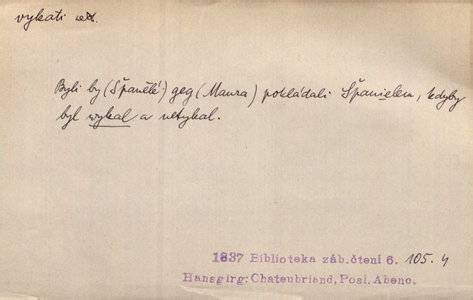 vykati ned.
Byli by (Španělé) geg (Maura) pokládali Španielem, kdyby
byl wykal a netykal.
1837 Biblioteka záb. čtení 6. 105. 4
Hansgirg: Chateubriand, Posl. Abenc.